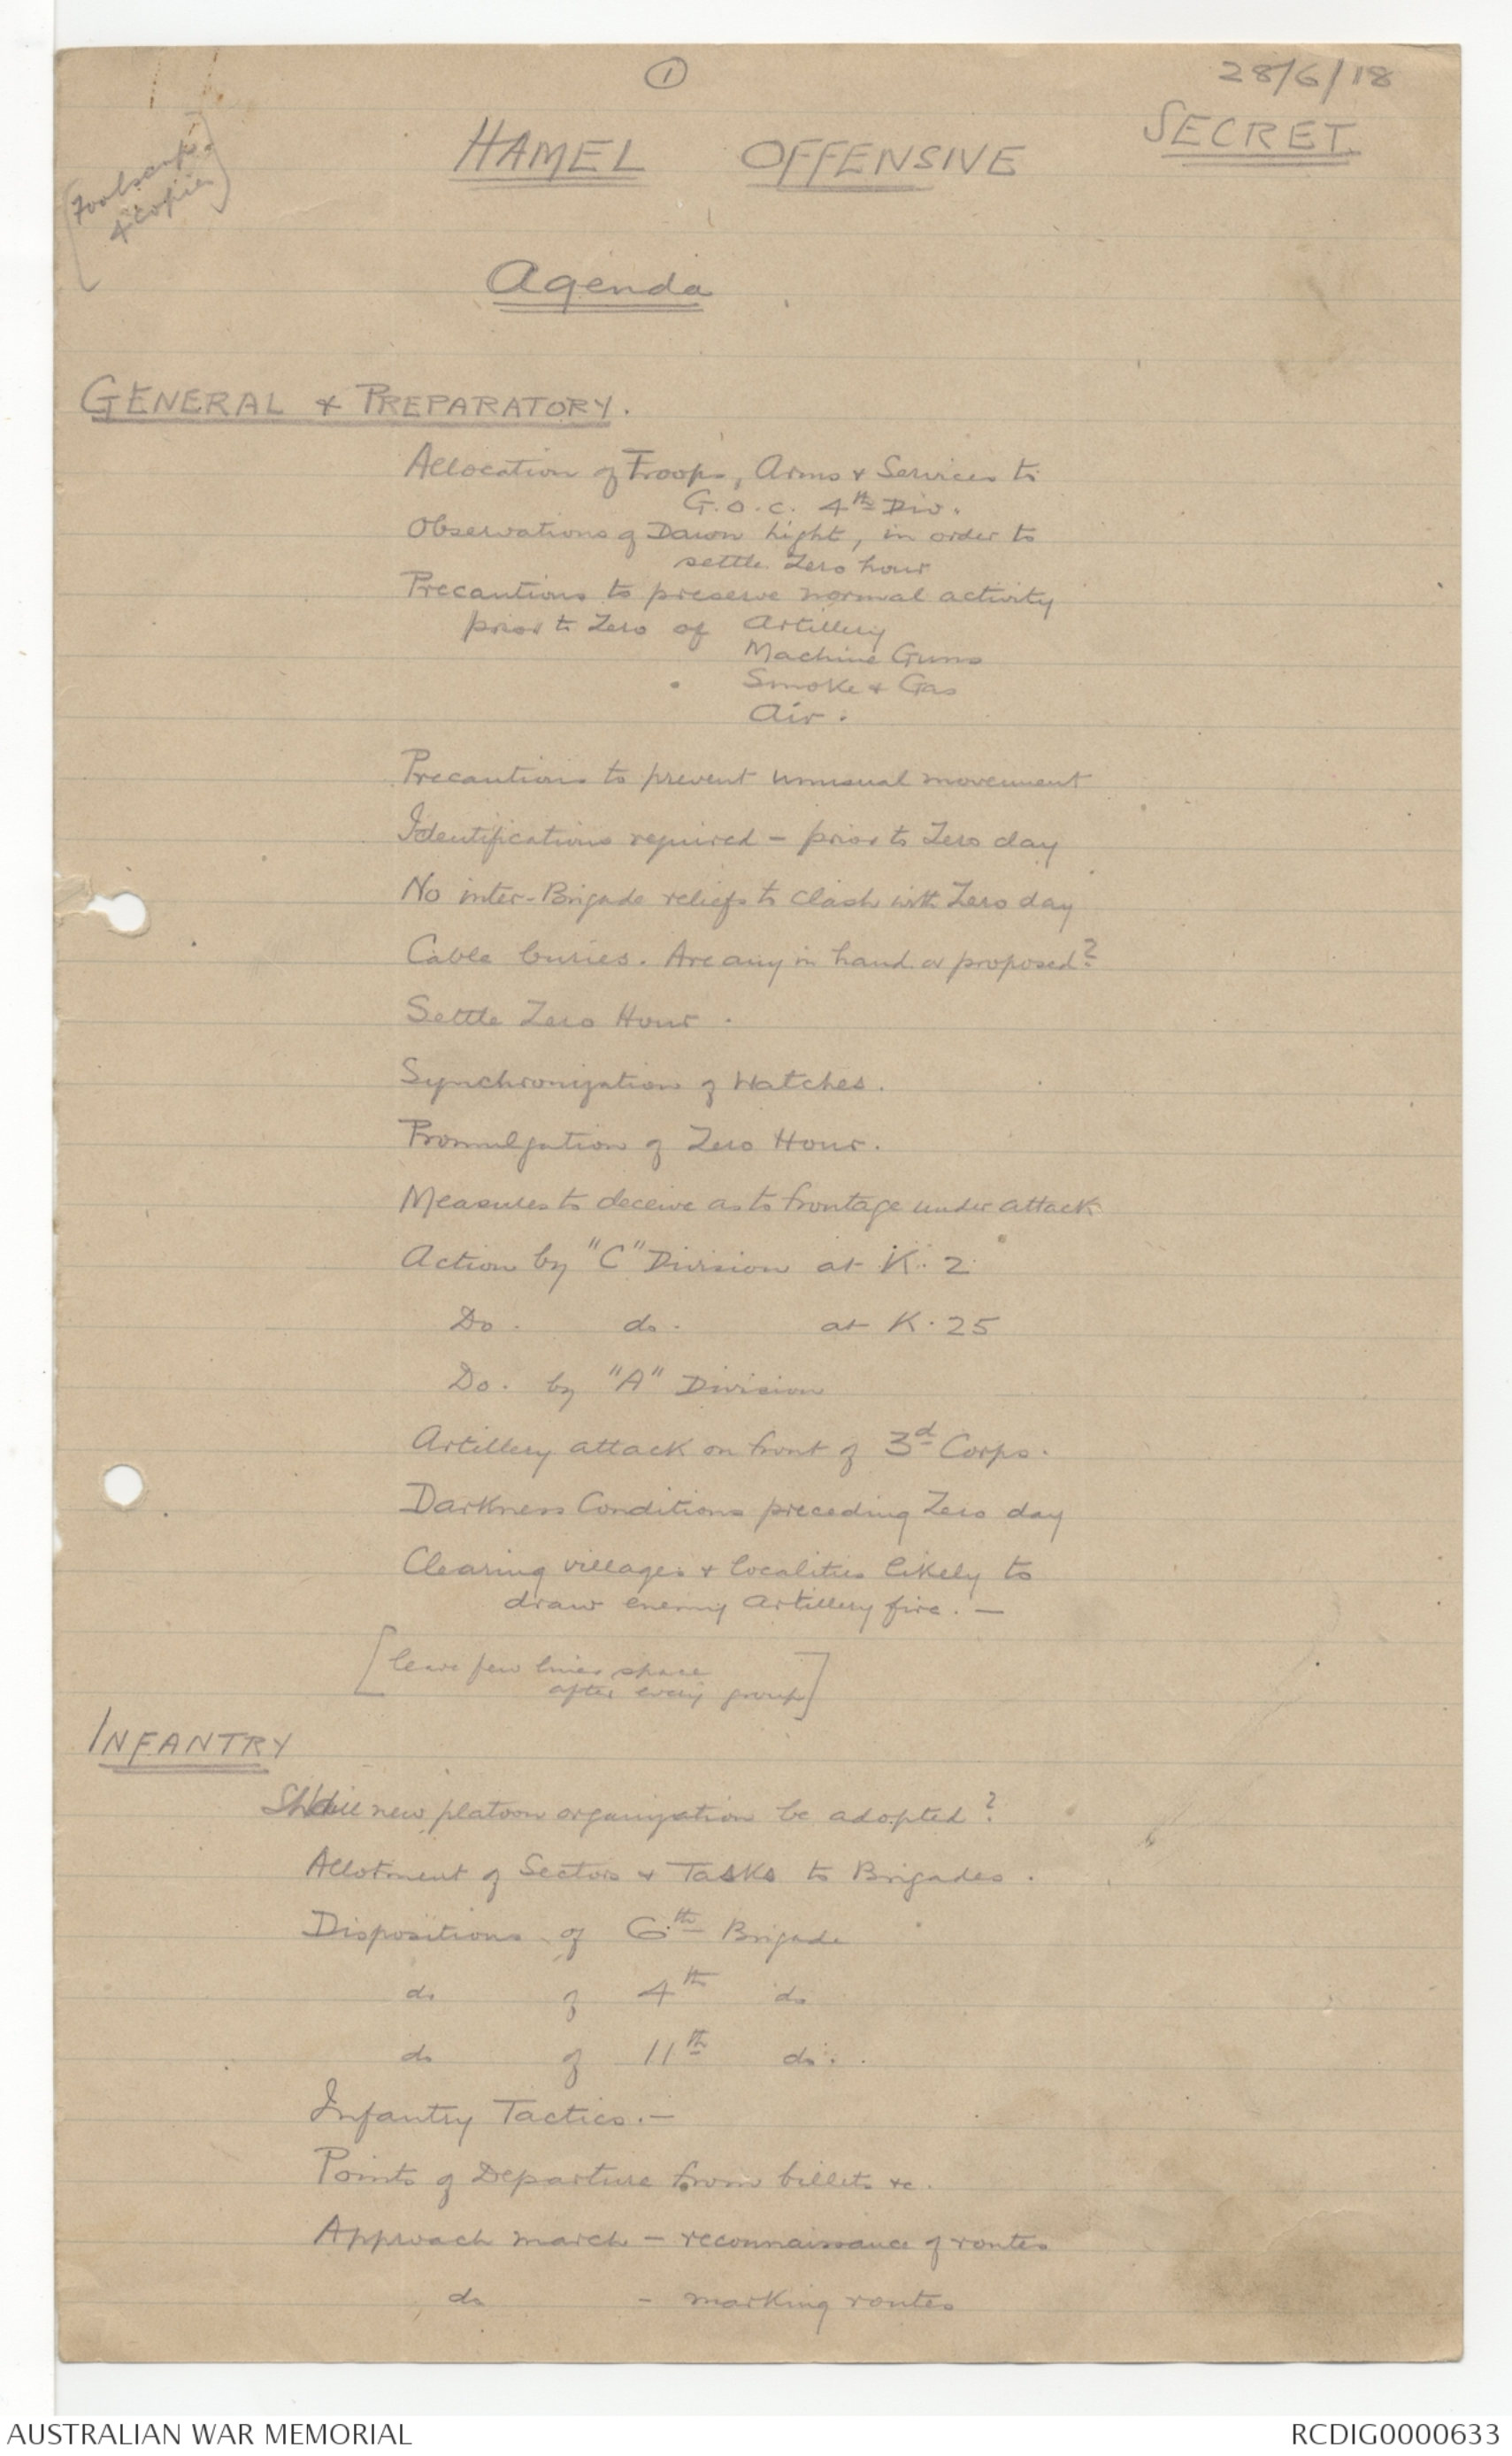 ①
28/6/18
SECRET.
(Foolscap.
4 copies)
HAMEL OFFENSIVE
Agenda
GENERAL & PREPARATORY.
Allocation of Troops, Arms & Services to
G.O.C. 4th Div.
Observations of Dawn Light, in order to
settle Zero hour
Precautions to preserve normal activity
prior to Zero of Artillery
Machine Guns
Smoke & Gas
Air.
Precautions to prevent unusual movement
Identifications required – prior to Zero day
No inter-Brigade reliefs to clash with Zero day
Cable buries. Are any in hand or proposed?
Settle Zero Hour.
Synchronization of Watches.
Promulgation of Zero Hour.
Measures to deceive as to frontage under attack
Action by "C" Division at K.2
Do. do. at K.25
Do. by "A" Division
Artillery attack on front of 3d Corps.
Darkness Conditions preceding Zero day
Clearing villages & localities likely to
draw enemy Artillery fire. –
[leave few lines space
after every group]
INFANTRY
new platoon organization be adopted?
Allotment of Sectors & Tasks to Brigades.
Dispositions of 6th Brigade
do of 4th do
do of 11th do.
Infantry Tactics. –
Points of Departure from billets &c.
Approach march – reconnaissance of routes
do – marking routes
AUSTRALIAN WAR MEMORIAL
RCDIG0000633